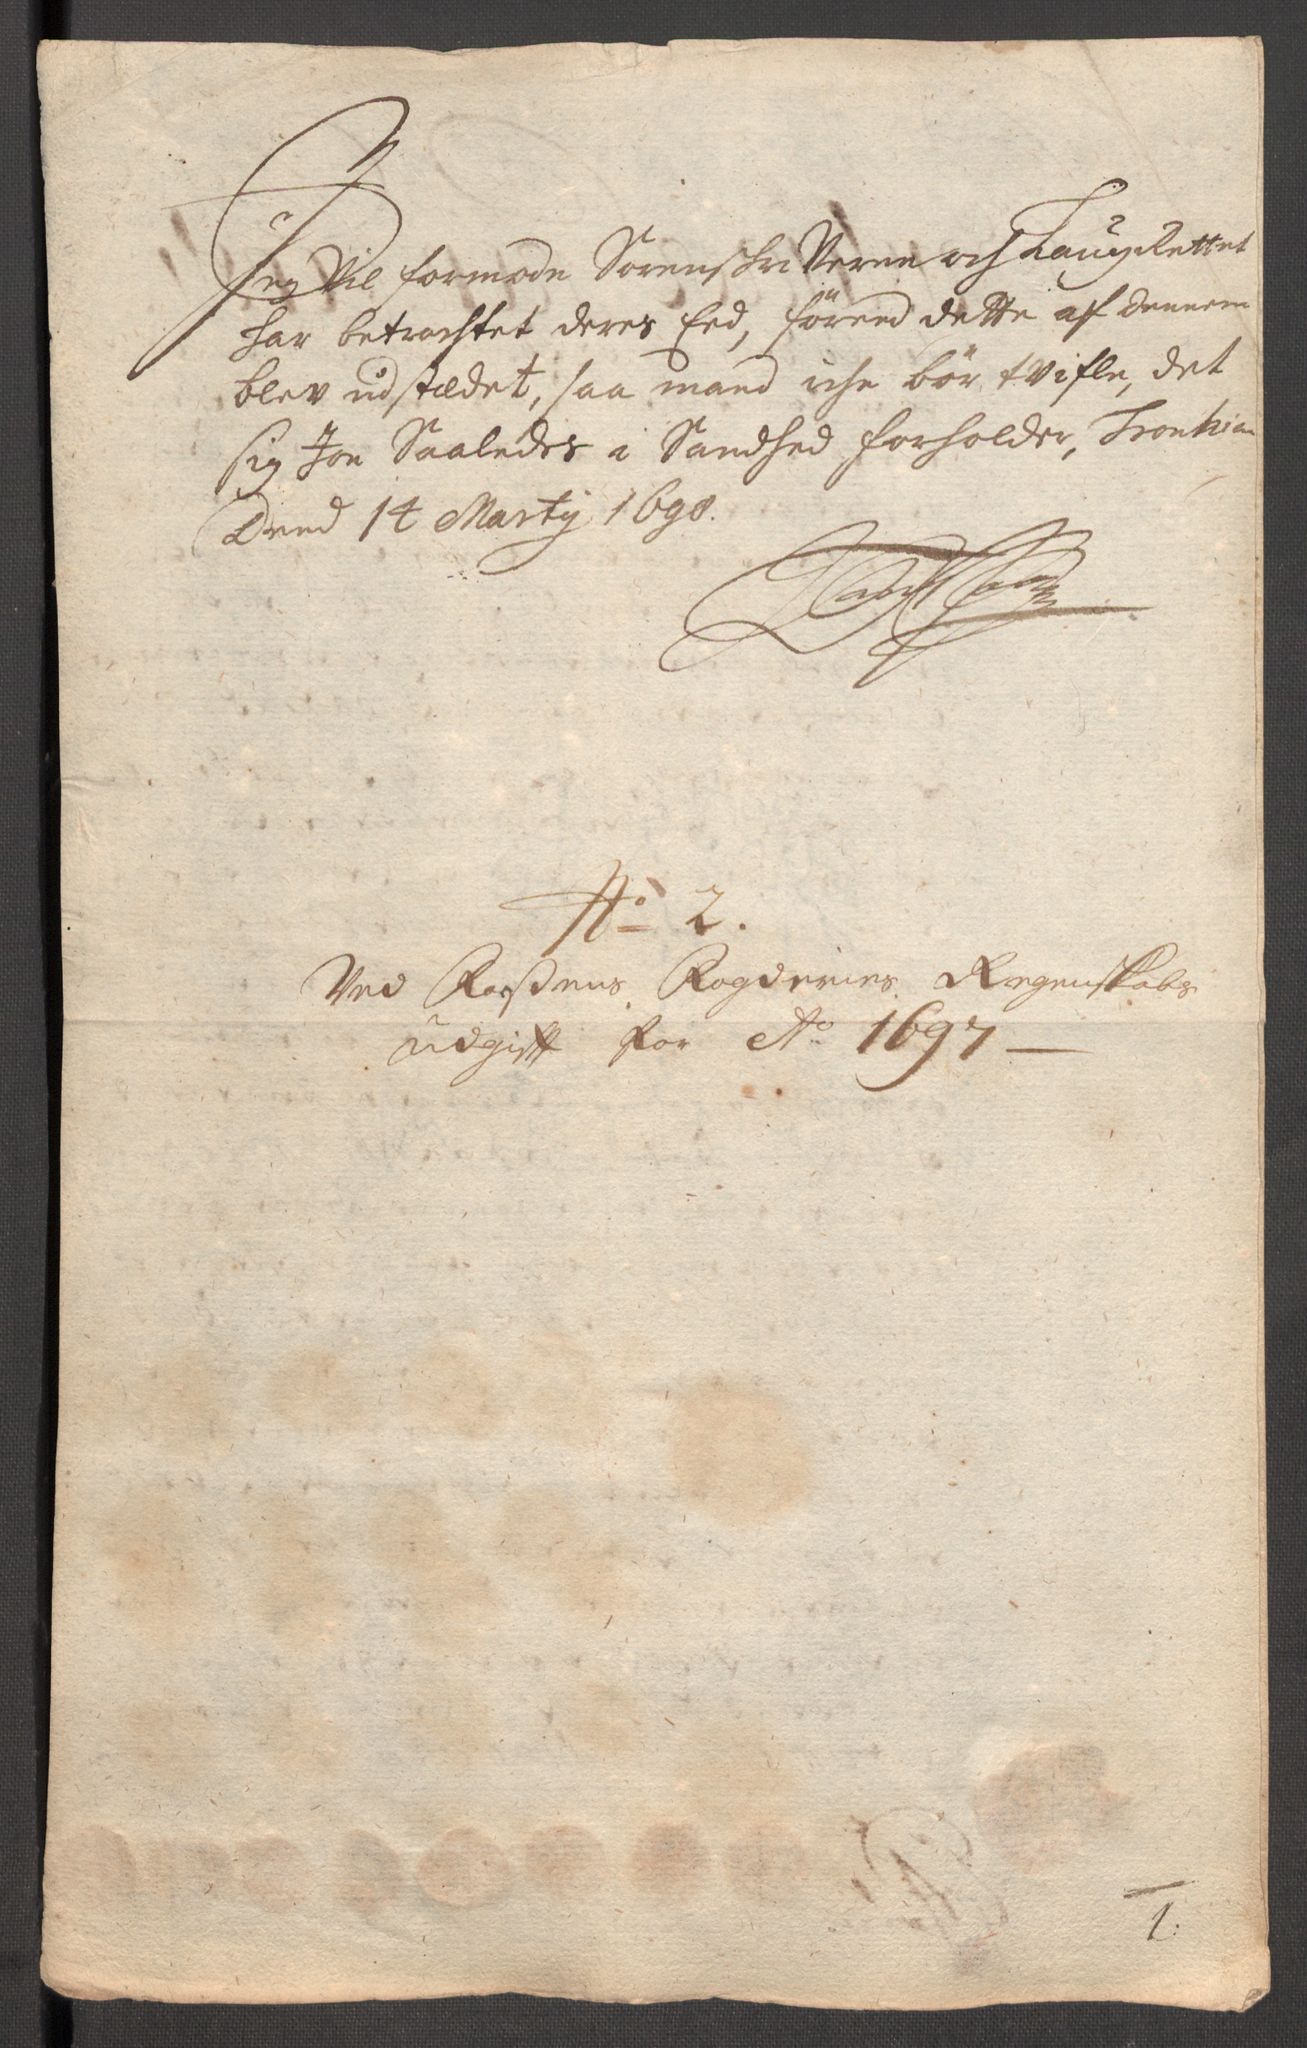 Jeg Vil formode Sorenschriveren och Laugrettet
har betrachtet deres Eed, förend dette af dennem
blev udstædet, saa mand iche bör tvifle, det
sig Jon Saaledes i Sandhed forholder, Tronhiem
Dend 14 Marty 1698.
No 2.
Ved Foßens Fogderies Regenskabs
udgifft for Ao 1697
1.